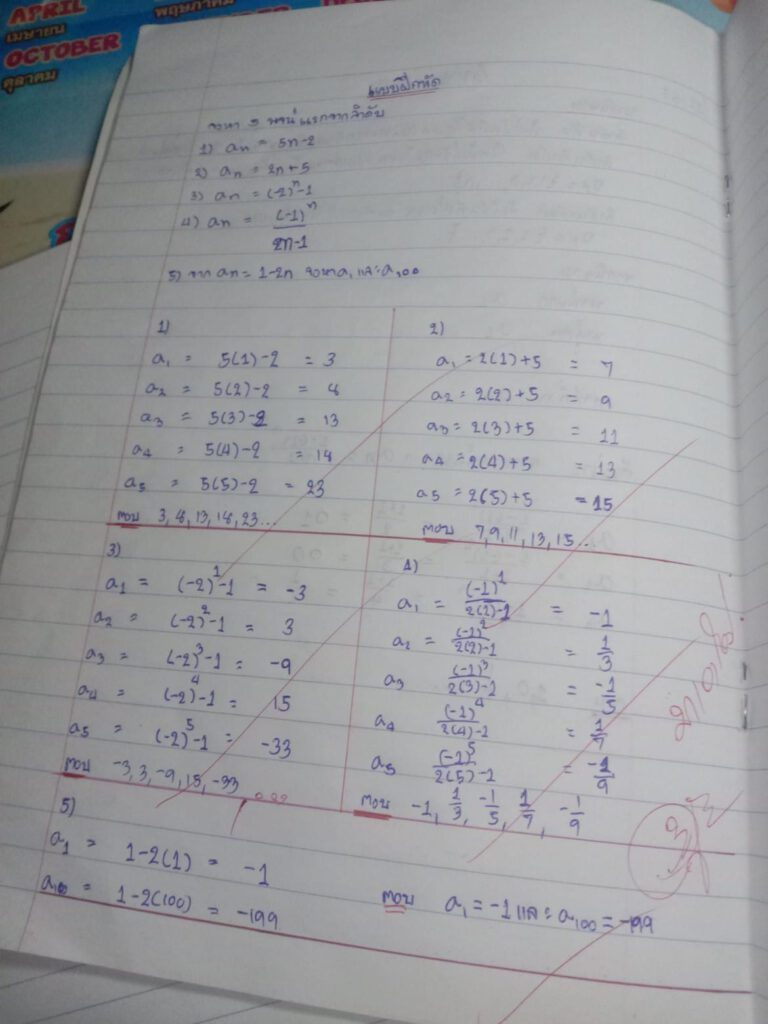 APRIL
เมษายน
OCTOBER
ตุลาคม
พฤษภาคม
แบบฝึกหัด
จงหา 5 พจน์แรกจากลำดับ
1) aₙ = 5n-2
2) aₙ = 2n+5
3) aₙ = (-2)ⁿ-1
4) aₙ = (-1)ⁿ
2n-1
5) จาก aₙ = 1-2n จงหา a₁ และ a₁₀₀
1)
a₁ = 5(1)-2 = 3
a₂ = 5(2)-2 = 8
a₃ = 5(3)-2 = 13
a₄ = 5(4)-2 = 18
a₅ = 5(5)-2 = 23
ตอบ 3, 8, 13, 18, 23...
2)
a₁ = 2(1)+5 = 7
a₂ = 2(2)+5 = 9
a₃ = 2(3)+5 = 11
a₄ = 2(4)+5 = 13
a₅ = 2(5)+5 = 15
ตอบ 7, 9, 11, 13, 15...
3)
a₁ = (-2)¹-1 = -3
a₂ = (-2)²-1 = 3
a₃ = (-2)³-1 = -9
a₄ = (-2)⁴-1 = 15
a₅ = (-2)⁵-1 = -33
ตอบ -3, 3, -9, 15, -33
4)
a₁ = (-1)¹/2(1)-1 = -1
a₂ = (-1)²/2(2)-1 = 1/3
a₃ (-1)³/2(3)-1 = -1/5
a₄ (-1)⁴/2(4)-1 = 1/7
a₅ (-1)⁵/2(5)-1 = -1/9
ตอบ -1, 1/3, -1/5, 1/7, -1/9
5)
a₁ = 1-2(1) = -1
a₁₀₀ = 1-2(100) = -199
ตอบ a₁ = -1 และ a₁₀₀ = -199